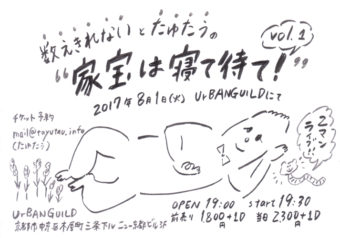 数えきれないとたゆたうの
vol.1
"家宝は寝て待て!"
2017年8月1日(火) UrBANGUILDにて
チケット予約
mail@tayutau.info
(たゆたう)
2マン
ライブ!!
OPEN 19:00 start 19:30
前売り 1800+1D 当日 2300+1D
UrBANGUILD
京都市中京区木屋町三条下ル ニュー京都ビル3F